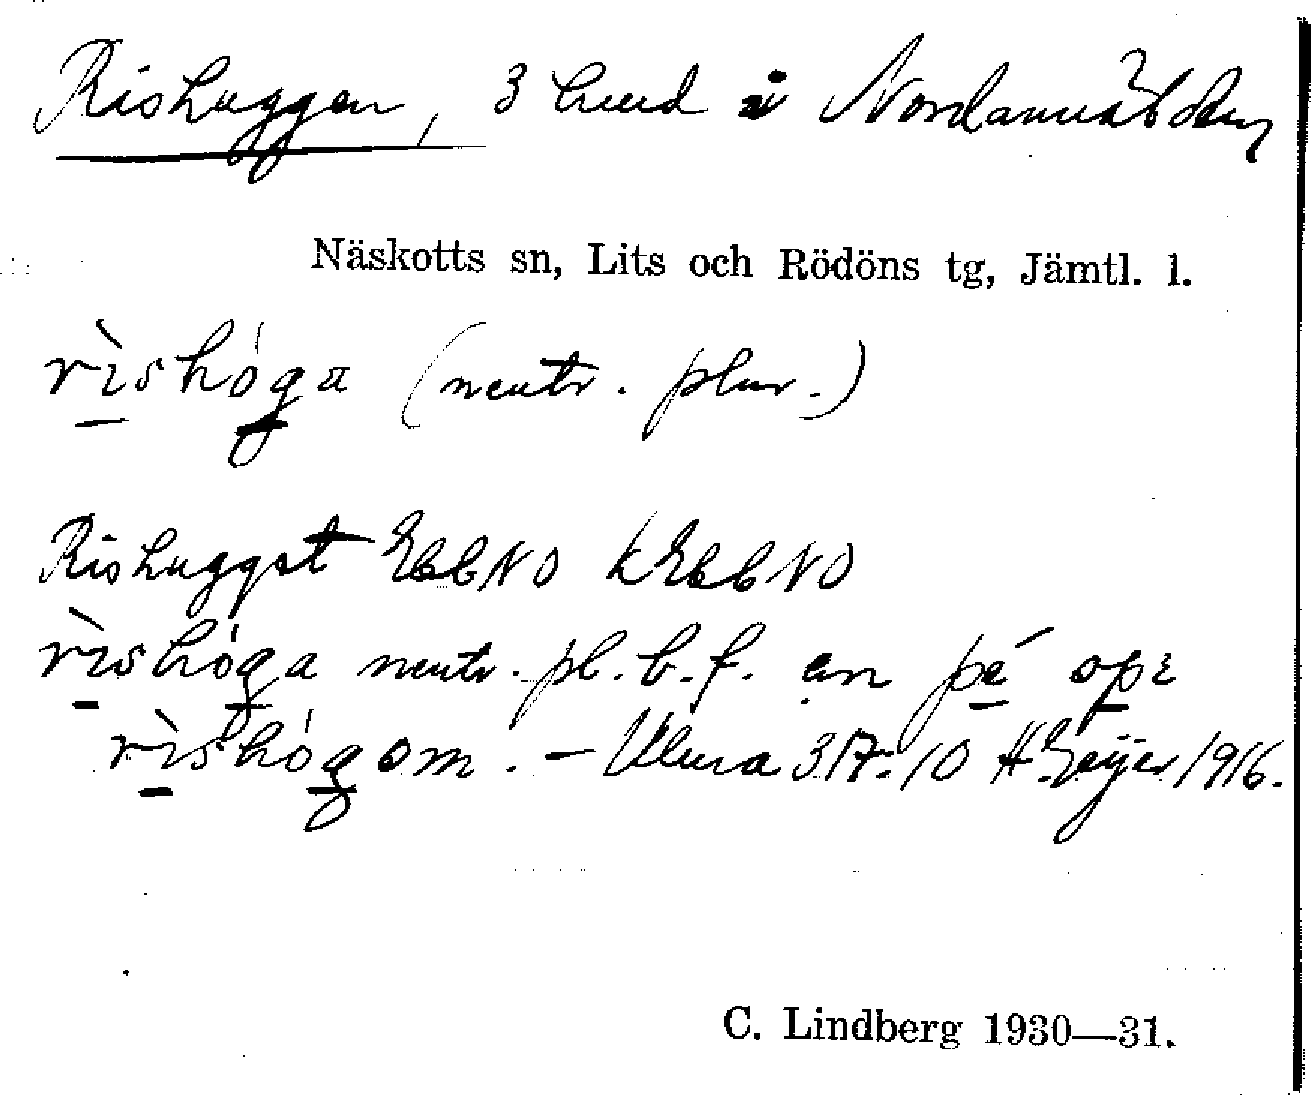 Rishuggen, 3 hmd i Nordannälden
Näskotts sn, Lits och Rödöns tg, Jämtl. l.
rìshóga (neutr. plur.)
Rishugget
rìshóga neutr. pl. b. f. an pé opi
rìshógom. – Ulma 317:10 H. Geijer 1916.
C. Lindberg 1930—31.